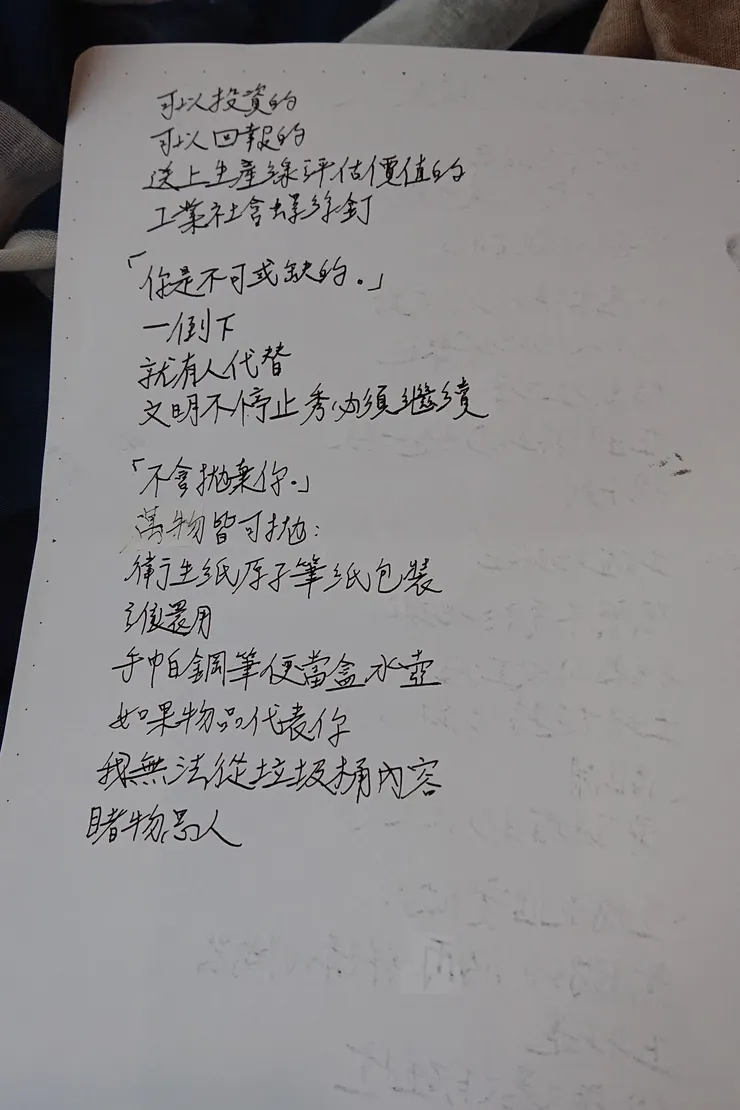 可以投資的
可以回報的
送上生產線評估價值的
工業社會螺絲釘
「你是不可或缺的。」
一倒下
就有人代替
文明不停止秀必須繼續
「不會拋棄你。」
萬物皆可拋：
衛生紙原子筆紙包裝
誰還用
手帕鋼筆便當盒水壺
如果物品代表你
我無法從垃圾桶內容
睹物思人